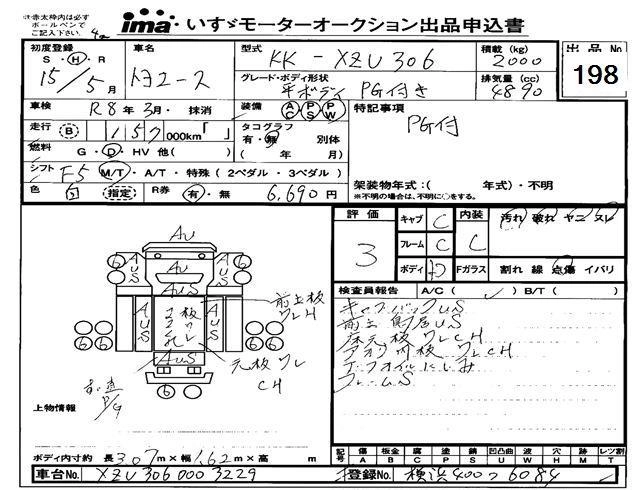 ※赤太枠内は必ず
ボールペンで
ご記入下さい。
ima いすゞモーターオークション出品申込書
初度登録 車名 型式 KK-XZU306 積載(kg) 2000 出品No
S・H・R 15/5月 トヨエース グレード・ボディ形状 平ボディ PG付き 排気量(cc) 4890 198
車検 R8年3月・抹消 装備 AC PS PW 特記事項
走行 B 157 000km「 」 タコグラフ 有・無 別体 PG付
燃料 G・D・HV 他( ) ( 年 月)
シフト F5 M/T・A/T・特殊(2ペダル・3ペダル) 架装物年式:( 年式)・不明
色 白 指定 R券 有・無 6,690円 ※不明の場合は、不明に○をする。
評価 キャブ C 内装 汚れ 破れ ヤニ スレ
3 フレーム C C
ボディ Fガラス 割れ 線 点傷 イバリ
検査員報告 A/C( ) B/T( )
AU
6 AUS AUS 6
キャブバックUS
前立板 ワレH
AUS AUS
床板ワレCH
アオリ内板ワレCH
6 6 6 6
AUS
ワレ
CH
エンジンオイルにじみ
フレームS
6
P/G
上物情報
ボディ内寸約 長3.07m×幅1.62m×高 m
記号 傷A 板金B 腐C 塗P 錆S 凹凸曲U 波W 穴H 跡M レンズ割T
車台No. XZU306 0003229 登録No. 横浜400つ6084